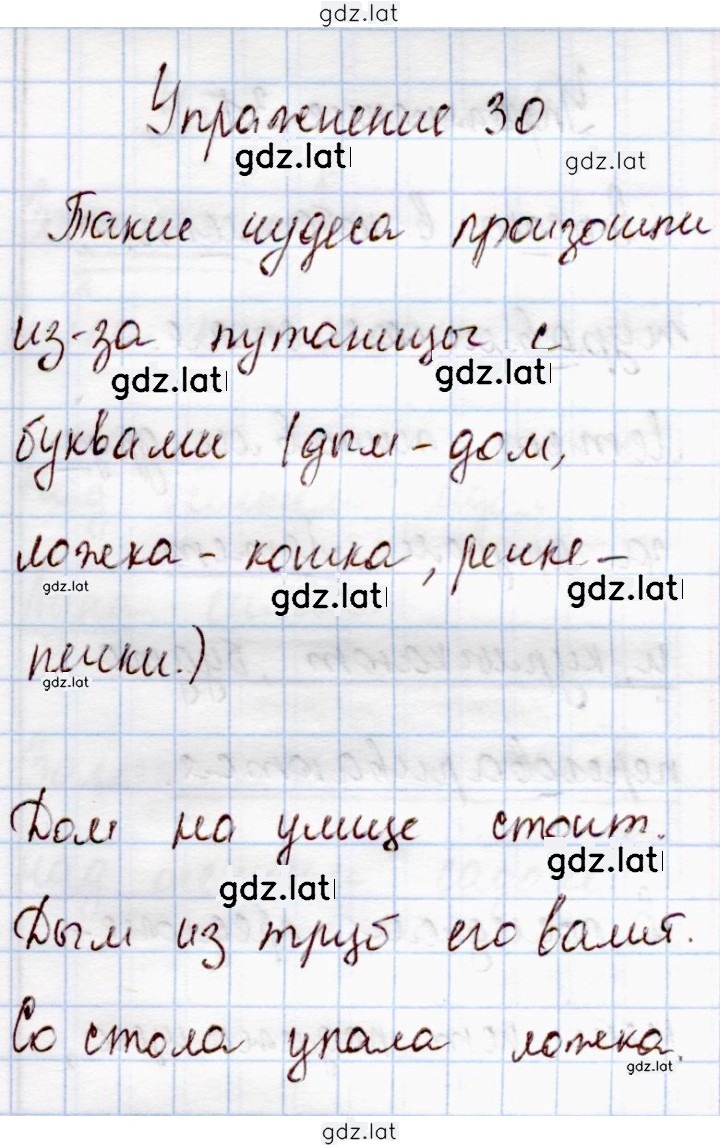 gdz.lat
Упражнение 30
gdz.lat gdz.lat
Такие чудеса произошли
из-за путаницы с
gdz.lat gdz.lat
буквами (дым - дом,
ложка - кошка, речке -
gdz.lat gdz.lat gdz.lat
печки.)
gdz.lat
Дом на улице стоит.
gdz.lat gdz.lat
Дым из труб его валит.
Со стола упала ложка.
gdz.lat
gdz.lat